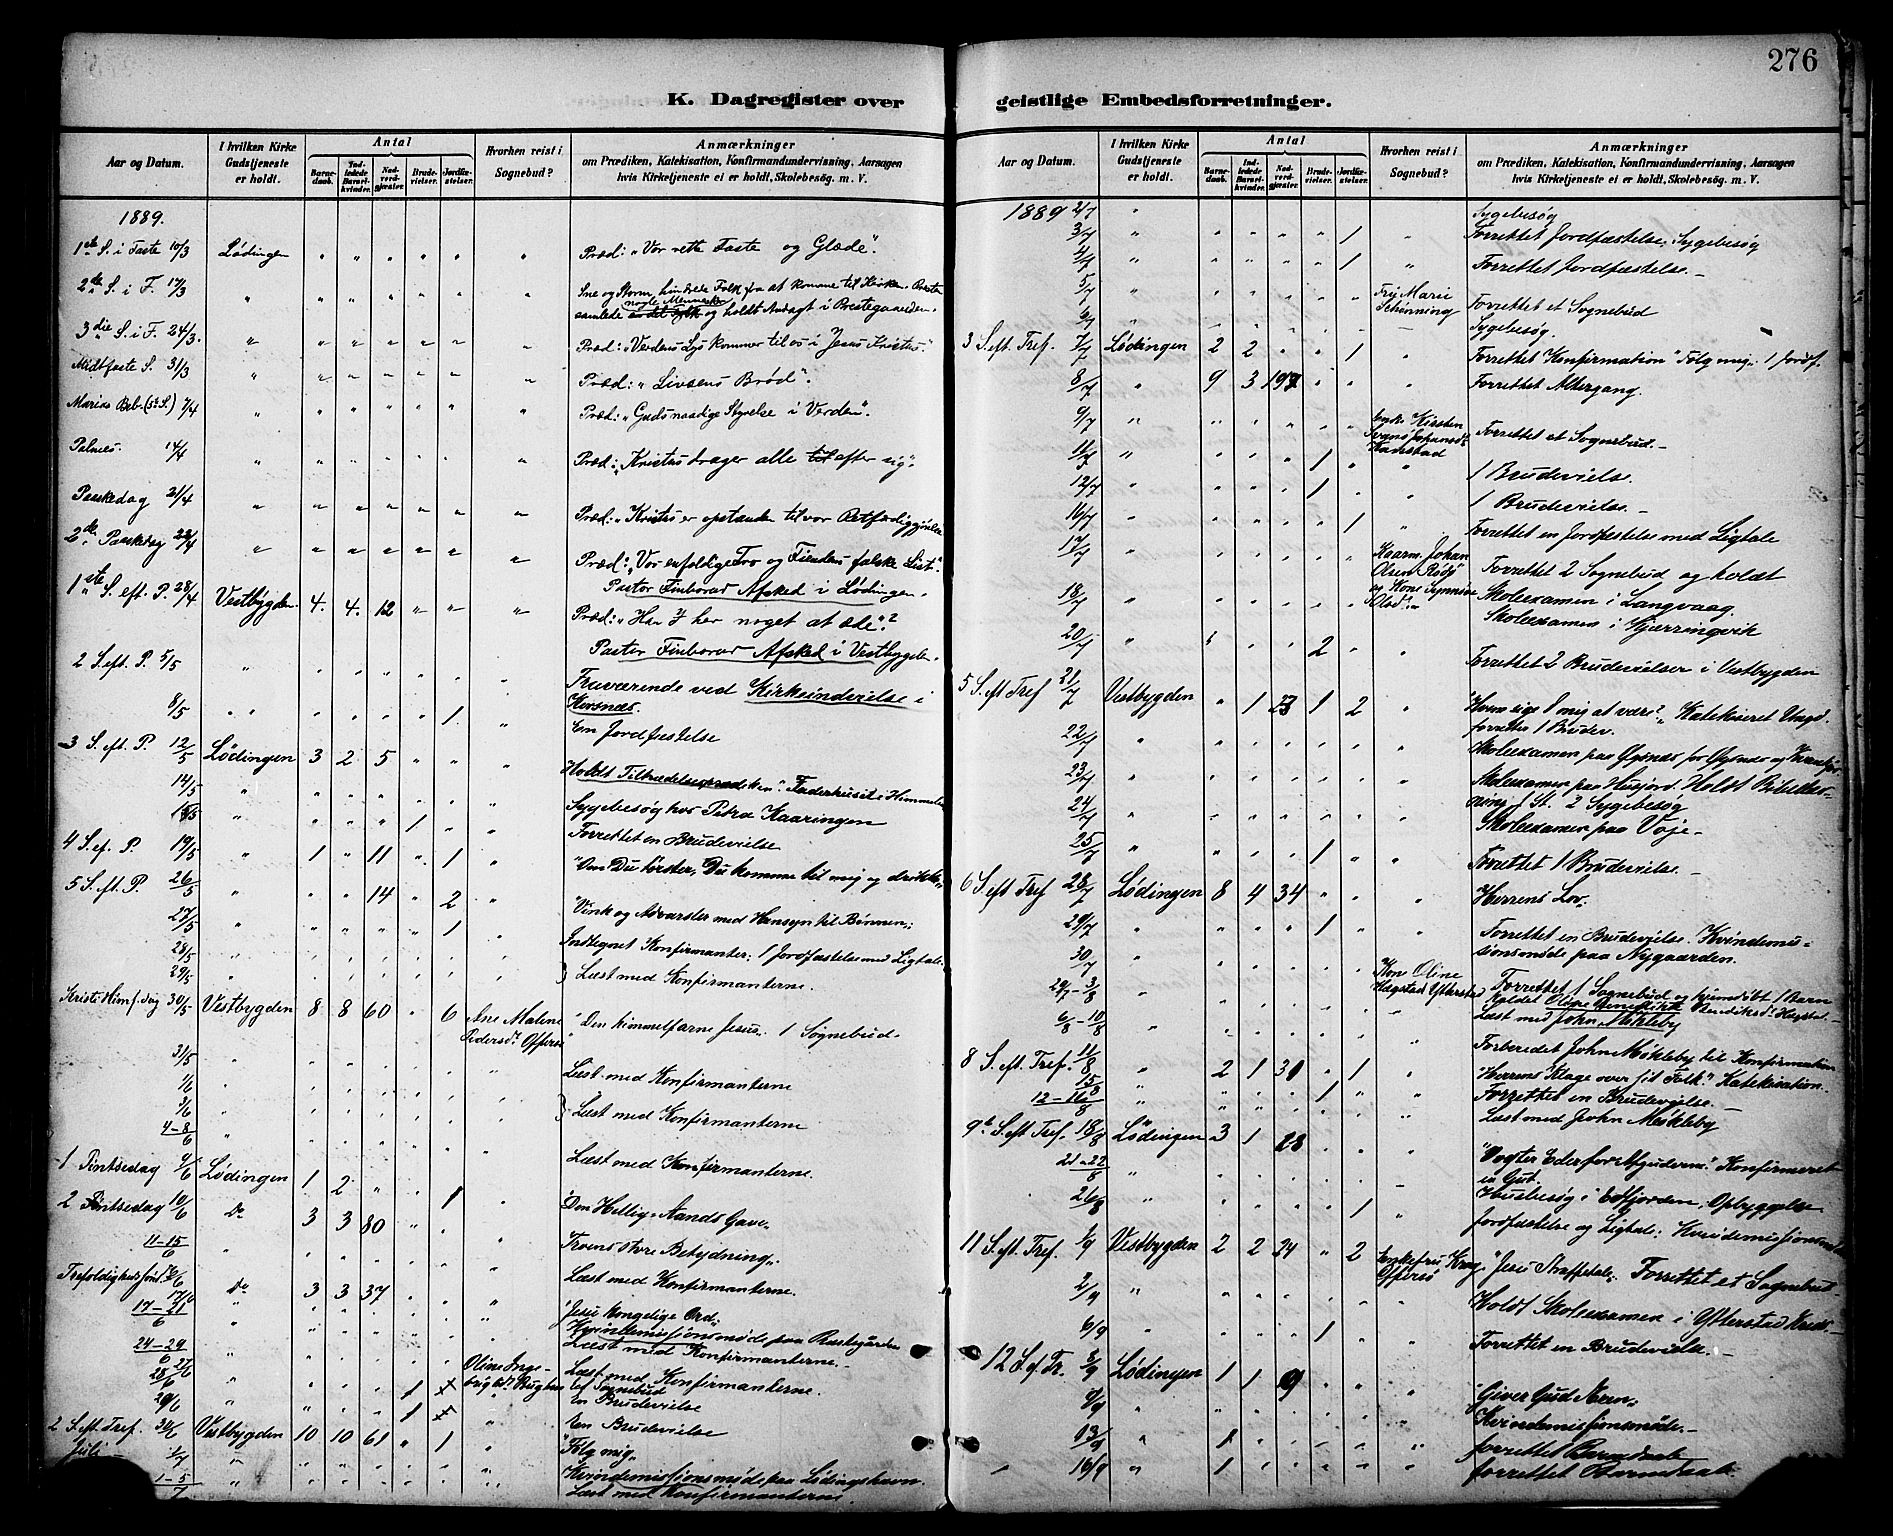 276
K. Dagregister over geistlige Embedsforretninger.
Aar og Datum. | I hvilken Kirke Gudstjeneste er holdt. | Antal | Barne-daab. | Ind-ledede Barsel-kvinder. | Nad-verd-gjæster. | Brude-vielser. | Jordfæ-stelser. | Hvorhen reist i Sognebud? | Anmærkninger om Prædiken, Katekisation, Konfirmandundervisning, Aarsagen hvis Kirketjeneste ei er holdt, Skolebesøg. m. V.
1889.
1ste S. i Faste 10/3 Lødingen " " " " " " Præd: "Vor rette Faste og Glæde".
2den S. i F. 17/3 " " " " " " " Sne og Storm hindrede Folk fra at komme til Kirken. Præsten
samlede nogle Mennesker og holdt Andagt i Præstegaarden.
3die S. i F. 24/3. " " " " " " " Præd: "Verdens Lys kommer til os i Jesus Kristus."
Midtfaste S. 31/3 " " " " " " " Præd: "Livsens Brød".
Marias Beb. (5te S.) 7/4 " " " " " " Præd: "Guds naadige Styrelse i Verden".
Palmes. 14/4 " " " " " " " Præd: "Kristus drager alle til efter sig".
Paaskedag 21/4 " " " " " " " Præd: "Kristus er opstanden til vor Retfærdiggjørelse
2den Paaskedag 22/4 " " " " " " " Præd: "Vor enfoldige Tro og Fiendens falske List".
Pastor Finborud Afsked i Lødingen.
1ste S. eft. P. 28/4 Vestbygden 4. 4. 12 " " " Præd: "Har I her noget at æde"?
Pastor Finborud Afsked i Vestbygden.
2 S. eft. P. 5/5 " " " " " " " Fraværende ved Kirkeindvielse i
Korsnæs.
8/5 " " " " " " 1 " En Jordfæstelse
3 S. eft. P. 12/5 Lødingen 3 2 5 " " " Holdt Tiltrædelsesprædiken: "Faderhuset i Himmelen
14/5 " " " " " " " Sygebesøg hos Petra Kaaringen
15/5 " " " " 1 " " Forrettet en Brudevielse
4 S. ef. P. 19/5 " 1 " 11 " 1 " "Om Du tørster, Du komme til mig og drikke"
5 S. eft. P. 26/5 " " " 14 " 2 " "Vink og Advarsler med Hensyn til Bønnen"
27/5 " " " " " 1 " Indtegnet Konfirmanter. 1 Jordfæstelse med Ligtale.
28/5
29/5 } Læst med Konfirmanterne.
Kristi Himf. dag 30/5 Vestbygden 8 8 60 " 6 Ane Malene Pedersd. Offersø "Den himmelfarne Jesus". 1 Sognebud.
31/5 " Læst med Konfirmanterne
1/6
3/6 } Læst med Konfirmanterne
4-8/6 " Læst med Konfirmanterne.
1 Pintsedag 9/6 Lødingen 1 2 " " 1 " "Den Hellig-Aands Gave"
2 Pintsedag 10/6 Do 3 3 80 " " Troens store Betydning"
11-15/6 " Læst med Konfirmanterne.
Trefoldighedssønd. 16/6 Do 3 3 37 " " "Jesu kongelige Ord"
17/6 Kvindemissionsmøde paa Præstgården
17-21/6 Læst med Konfirmanterne.
24-29/6 " Læst med Konfirmanterne.
28/6 27/6 Oline Inge-brigtsd. Et Sognebud
1 En Brudevielse
29/6 " 1 " En Brudevielse
2 S. eft. Tref. 30/6 Vestbygden 10 10 61 " 1 " "Følg mig"
Juli 1/7 " Kvindemissionsmøde paa Lødingshavn.
1-5/7 Læst med Konfirmanterne.
Aar og Datum. | I hvilken Kirke Gudstjeneste er holdt. | Antal | Barne-daab. | Ind-ledede Barsel-kvinder. | Nad-verd-gjæster. | Brude-vielser. | Jordfæ-stelser. | Hvorhen reist i Sognebud? | Anmærkninger om Prædiken, Katekisation, Konfirmandundervisning, Aarsagen hvis Kirketjeneste ei er holdt, Skolebesøg. m. V.
1889 2/7 " Sygebesøg
3/7 " " " " " 1 " Forrettet Jordfæstelse, Sygebesøg
4/7 " " " " " 1 " Forrettet Jordfæstelse.
5/7 " " " " " " Marie Schönning Forrettet et Sognebud
6/7 " Sygebesøg.
3 S. eft. Tref. 7/7 Lødingen 2 2 " " 1 " Forrettet Konfirmation "Følg mig". 1 Jordf.
8/7 " 9 3 197 " " " Forrettet Altergang.
9/7 " " " " " " Kirsten Johansd. Kanstad Forrettet et Sognebud.
11/7 " " " " 1 " " 1 Brudevielse.
12/7 " " " 1 " " 1 Brudevielse.
16/7 " " " " " 1 " Forrettet en Jordfæstelse med Ligtale
17/7 " " " " " " Johan Olsen Rødø og Kone Forrettet 2 Sognebud og holdt
18/7 " Skoleexamen i Langvaag.
Skoleexamen i Kjærringvik
20/7 " " " " 2 " " Forrettet 2 Brudevielser i Vestbygden
5 S. eft Tref 21/7 Vestbygden " 1 23 1 2 " "Hvem sige I mig at være?" Katekiseret Ungd.
forrettet 1 Brudev.
22/7 " Skoleexamen paa Øxnæs for Øxnæs og
23/7 " Skoleexamen paa Husjord. Holdt Bibellæs-
ning s. St. 2 Sygebesøg
24/7 " Skoleexamen paa Voje.
25/7 " " " " 1 " " Forrettet 1 Brudevielse.
6 S. eft Tref 28/7 Lødingen 8 4 34 " " " Herrens Lov.
29/7 " " " " 1 " " Forrettet en Brudevielse. Kvindemis-
sionsmøde paa Nygaarden.
30/7
29/7-3/8 " Kone Oline Hægstad Ytterstad Forrettet 1 Sognebud og hjemdøbt 1 Barn
kaldet Oline Benedikte
6/8-10/8 " Læst med John Mökleby
Forberedet John Mökleby til Konfirmation
8 S. eft. Tref. 11/8 " 2 1 31 " 1 " "Herrens Klage over sit Folk." Katekisation.
15/8 " 1 Forrettet en Brudevielse.
12-16/8 " Læst med John Mökleby
9de S. eft Tref. 18/8 Lødingen 3 1 28 " " " "Vogter Eder for Afguderne." Konfirmeret
en Gut.
21-22/8 " Husbesøg i Efjorden, Opbyggelse
26/8 " " " " " 1 " Jordfæstelse og Ligtale; Kvindemissionsmøde
11 S. eft. Tref. 1/9 Vestbygden 2 2 24 " 2 Enkefru Krog Offersø "Jesu Straffetale". Forrettet et Sognebud.
2/9 " Holdt Skoleexamen i Ytterstad Kreds.
6/9 " " " " 1 " " Forrettet en Brudevielse.
12 S. ef Tr. 8/9 Lødingen 1 1 9 " " " "Giver Gud Æren"
9/9 " Kvindemissionsmøde.
13/9 " 1 " " " " " forrettet Barnedaab
" 16/9 " 1 " " " " " forrettet Barnedaab